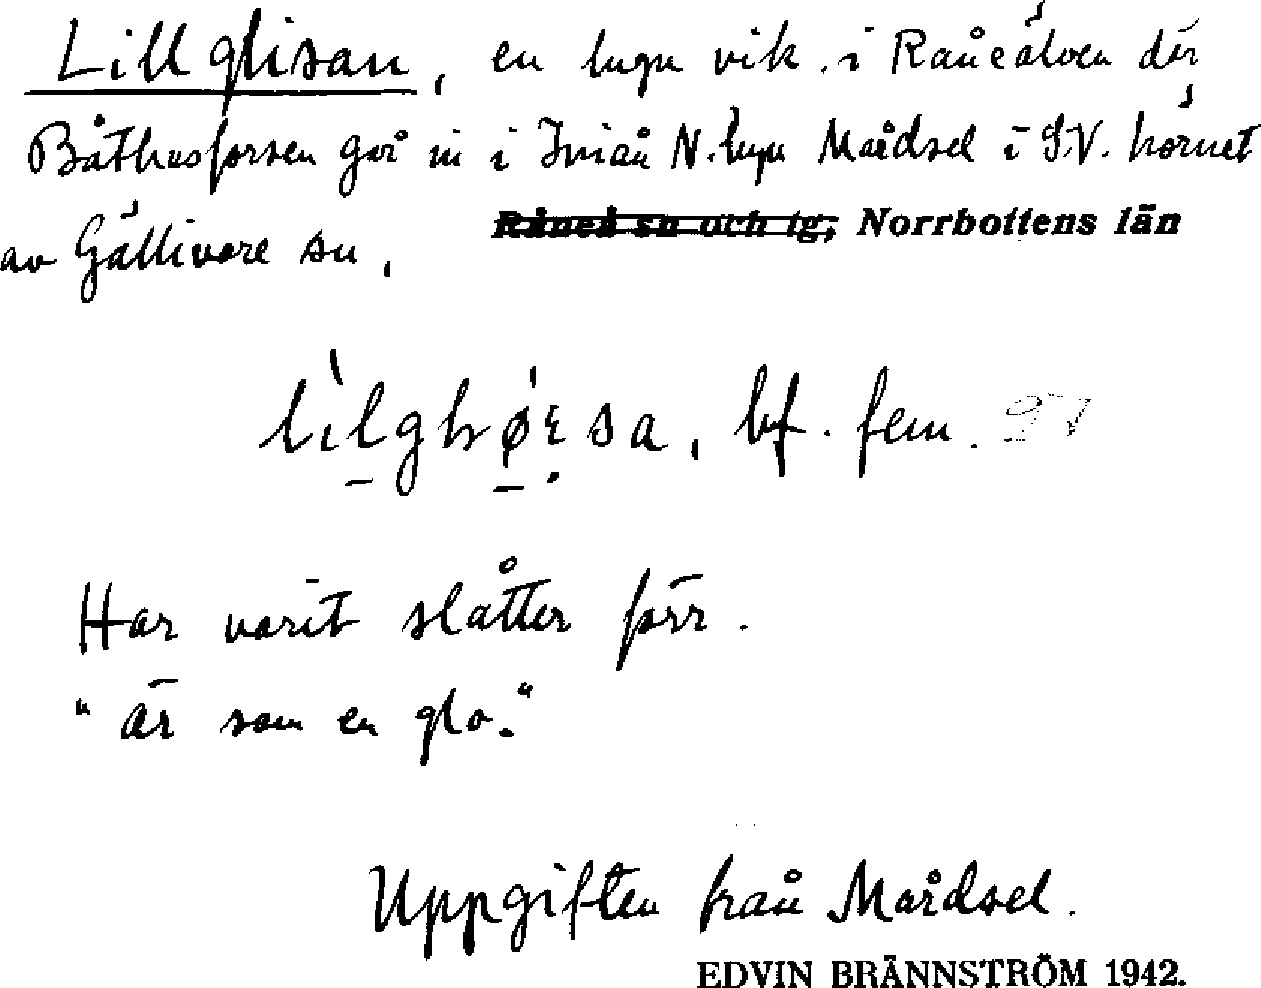 Lillglisan, en lugn vik i Råneälven där
Båthusforsen går in i Iniån N. lugn Mårdsel i S.V. hörnet
av Gällivare sn,
Råneå sn och tg, Norrbottens län
bf. fem.
Har varit slåtter förr.
"är som en glo."
Uppgiften från Mårdsel.
EDVIN BRÄNNSTRÖM 1942.